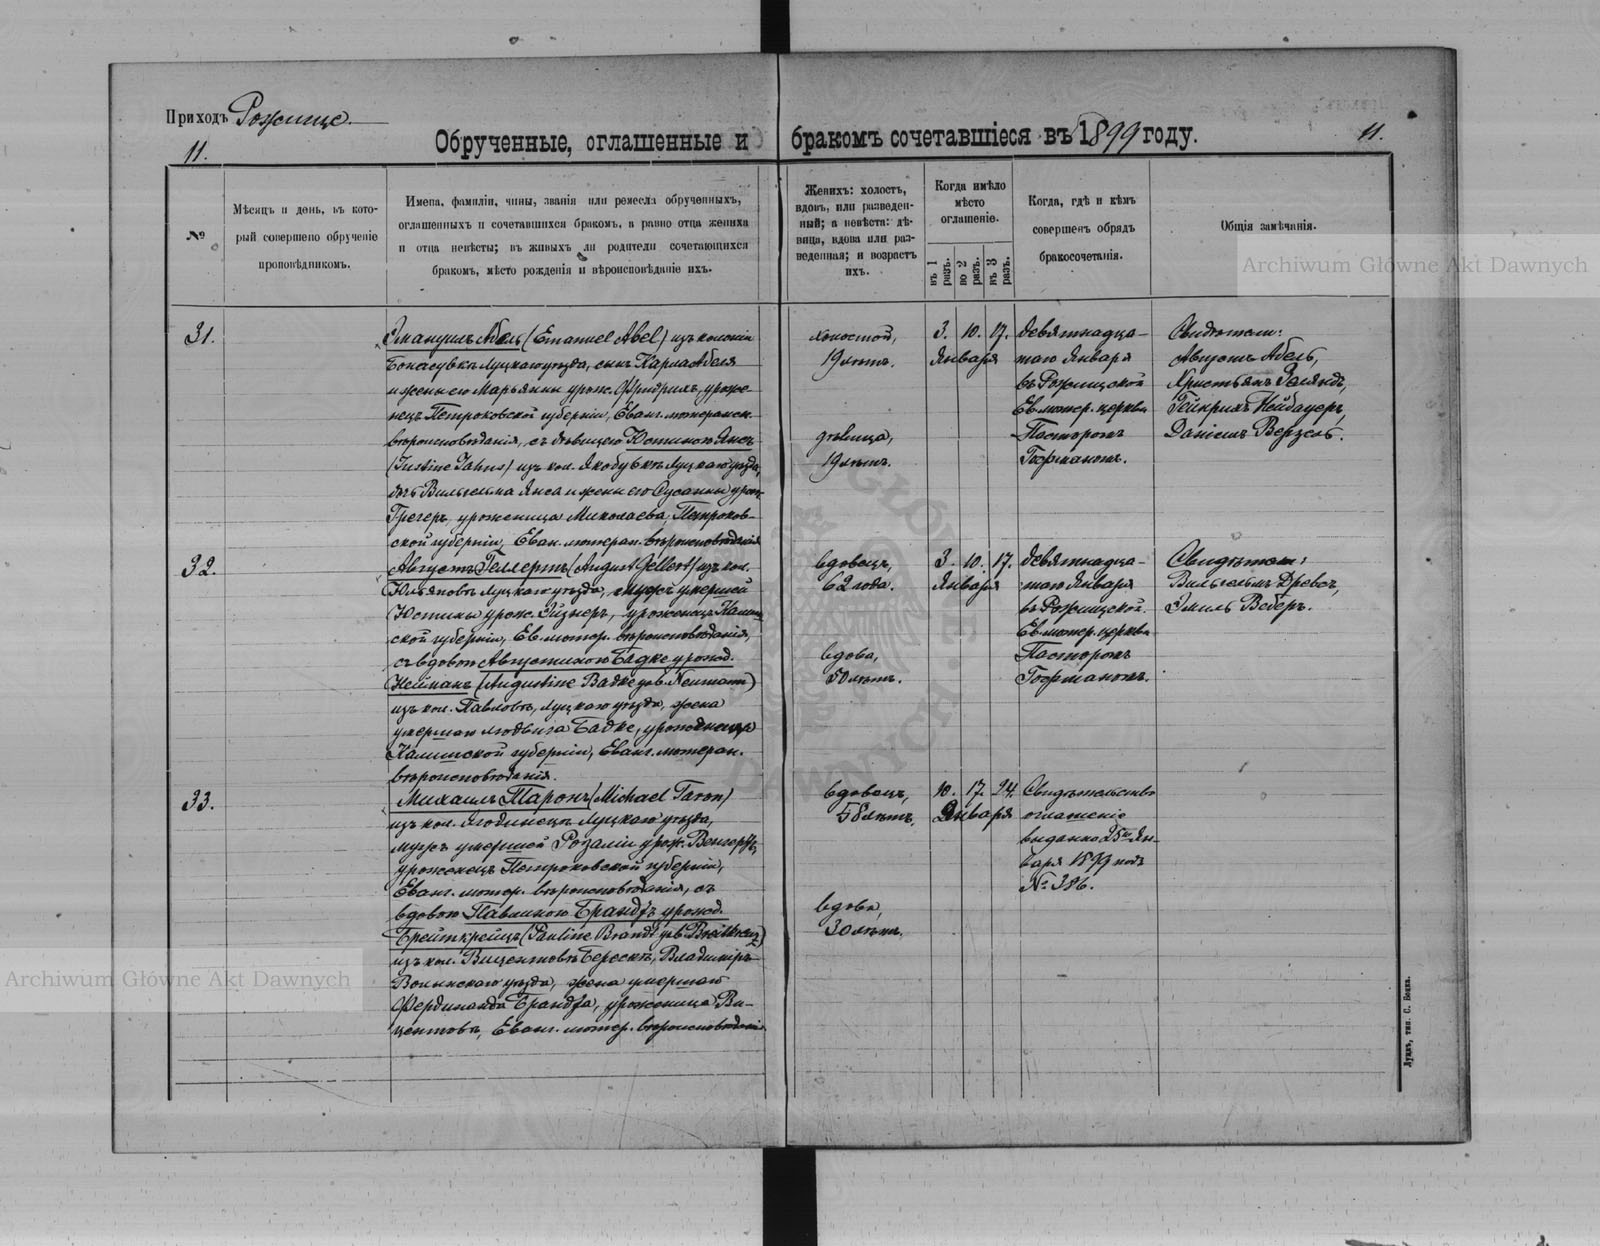 Приходъ Рожище.
11.
Обрученные, оглашенные и бракомъ сочетавшіеся въ 1899 году.
11.
№
Мѣсяцъ и день, въ кото-
рый совершено обрученіе
проповѣдникомъ.
Имена, фамиліи, чины, званія или ремесла обрученныхъ,
оглашенныхъ и сочетавшихся бракомъ, а равно отца жениха
и отца невѣсты; въ живыхъ ли родители сочетающихся
бракомъ, мѣсто рожденія и вѣроисповѣданіе ихъ.
Женихъ: холостъ,
вдовъ, или разведен-
ный; а невѣста: дѣ-
вица, вдова или раз-
веденная; и возрастъ
ихъ.
Когда имѣло
мѣсто
оглашеніе.
въ 1 разъ.
во 2 разъ.
въ 3 разъ.
Когда, гдѣ и кѣмъ
совершенъ обрядъ
бракосочетанія.
Общія замѣчанія.
Archiwum Główne Akt Dawnych
31.
Эмануилъ Абель (Emanuel Abel) изъ колоніи
Луцкаго уѣзда, сынъ Карла Абеля
и жены его Марьянны урож. Фридрихъ, уроже-
нецъ Петроковской губерніи, Еванг. лютеранск.
вѣроисповѣданія, съ дѣвицею Юстиною Янсъ
(Justine Jahns) изъ кол. Якобувкѣ Луцкаго уѣзда,
дочь Вильгельма Янса и жены его Сусанны урож.
Грегеръ, уроженица Миколаева, Петроков-
ской губерніи, Еван. лютеран. вѣроисповѣданія
холостой,
19 лѣтъ.
дѣвица,
19 лѣтъ.
3. 10. 17.
Января
девятнадца-
таго Января
въ Рожищской
Ев. лютер. церкви
Пасторомъ
Гофманомъ.
Свидѣтели:
Августъ Абель,
Христьянъ
Гейнрихъ Нейбауеръ,
Даніелъ
32.
Августъ Геллертъ (August Gellert) изъ кол.
Юльяновъ Луцкаго уѣзда, мужъ умершей
Юстины урож. Эйзнеръ, уроженецъ Калиш-
ской губерніи, Ев. лютер. вѣроисповѣданія,
съ вдовою Августиною Бадке урожд.
Нейманъ (Augustine Badke geb. Neumann)
изъ кол. Павловъ, Луцкаго уѣзда, жена
умершаго Людвига Бадке, уроженица
Калишской губерніи, Еванг. лютеран.
вѣроисповѣданія.
вдовецъ,
62 года.
вдова,
50 лѣтъ.
3. 10. 17.
Января
девятнадца-
таго Января
въ Рожищской
Ев. лютер. церкви
Пасторомъ
Гофманомъ.
Свидѣтели:
Вильгельмъ Древсъ,
Эмиль Веберъ.
33.
Михаилъ Таронъ (Michael Taron)
изъ кол. Луцкаго уѣзда,
мужъ умершей Розаліи урож.
уроженецъ Петроковской губерніи,
Еванг. лютер. вѣроисповѣданія, съ
вдовою Павлиною Брандтъ урожд.
Брейткрейцъ (Pauline Brandt geb. Breitkreuz)
изъ кол. Вицентовъ Берескъ, Владиміръ-
Волынскаго уѣзда, жена умершаго
Фердинанда Брандта, уроженица Ви-
центовъ, Еванг. лютер. вѣроисповѣданія.
вдовецъ,
58 лѣтъ.
вдова,
30 лѣтъ.
10. 17. 24.
Января
Свидѣтельство
оглашенія
выдано 25го Ян-
варя 1899 подъ
№ 386.
Archiwum Główne Akt Dawnych
Луцкъ, тип. С. Бокка.